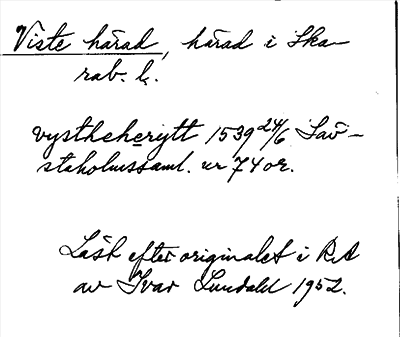 Viste härad, härad i Ska-
rab. l.
vystheherytt 1539 24/6 Säv-
staholmssaml. nr 74 or.
Läst efter originalet i RA
av Ivar Lundahl 1952.